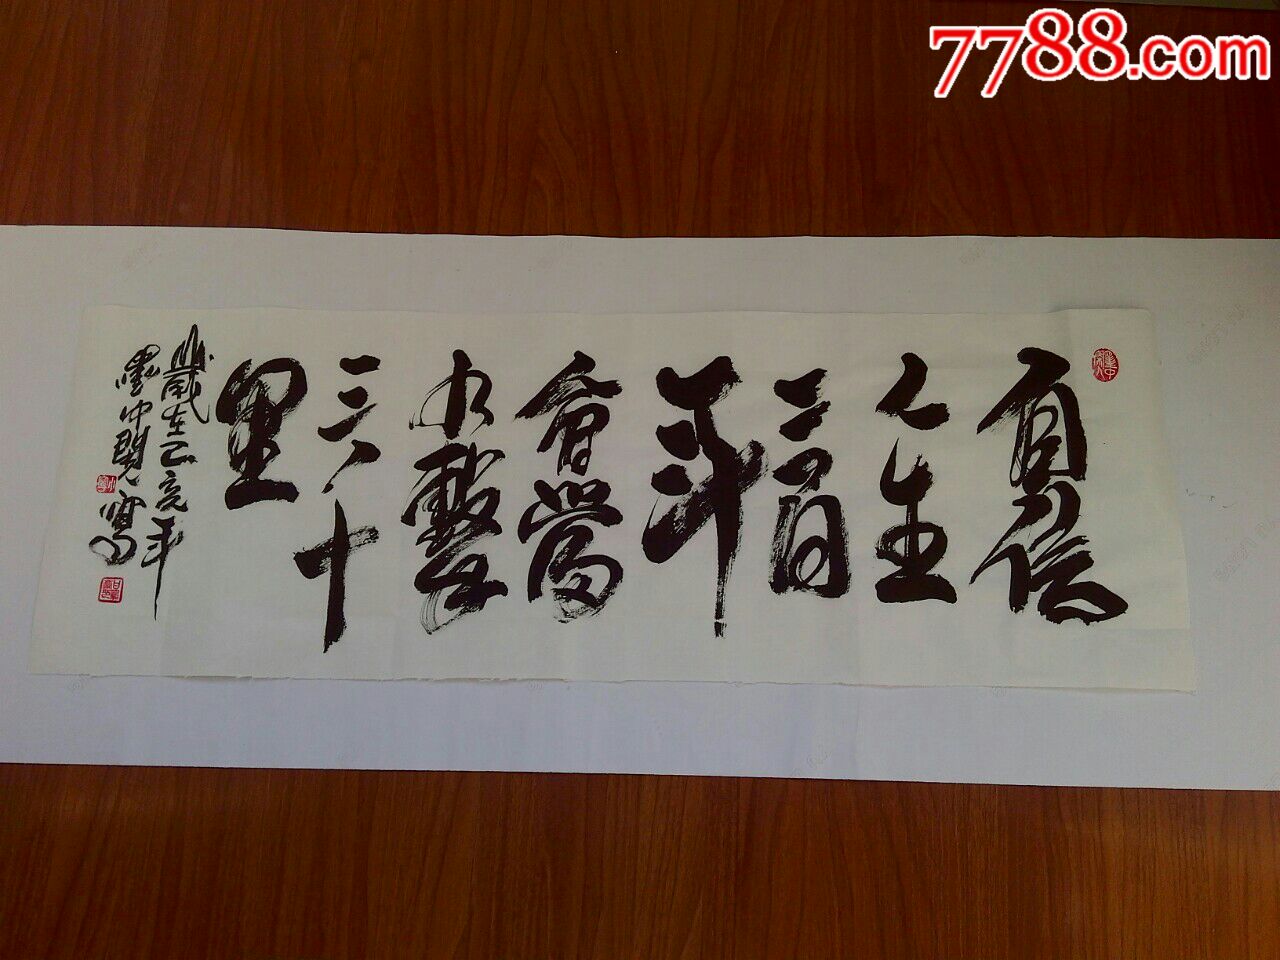 7788.com
自信
人生
二百
年
會當
水擊
三千
里
歲在己亥年